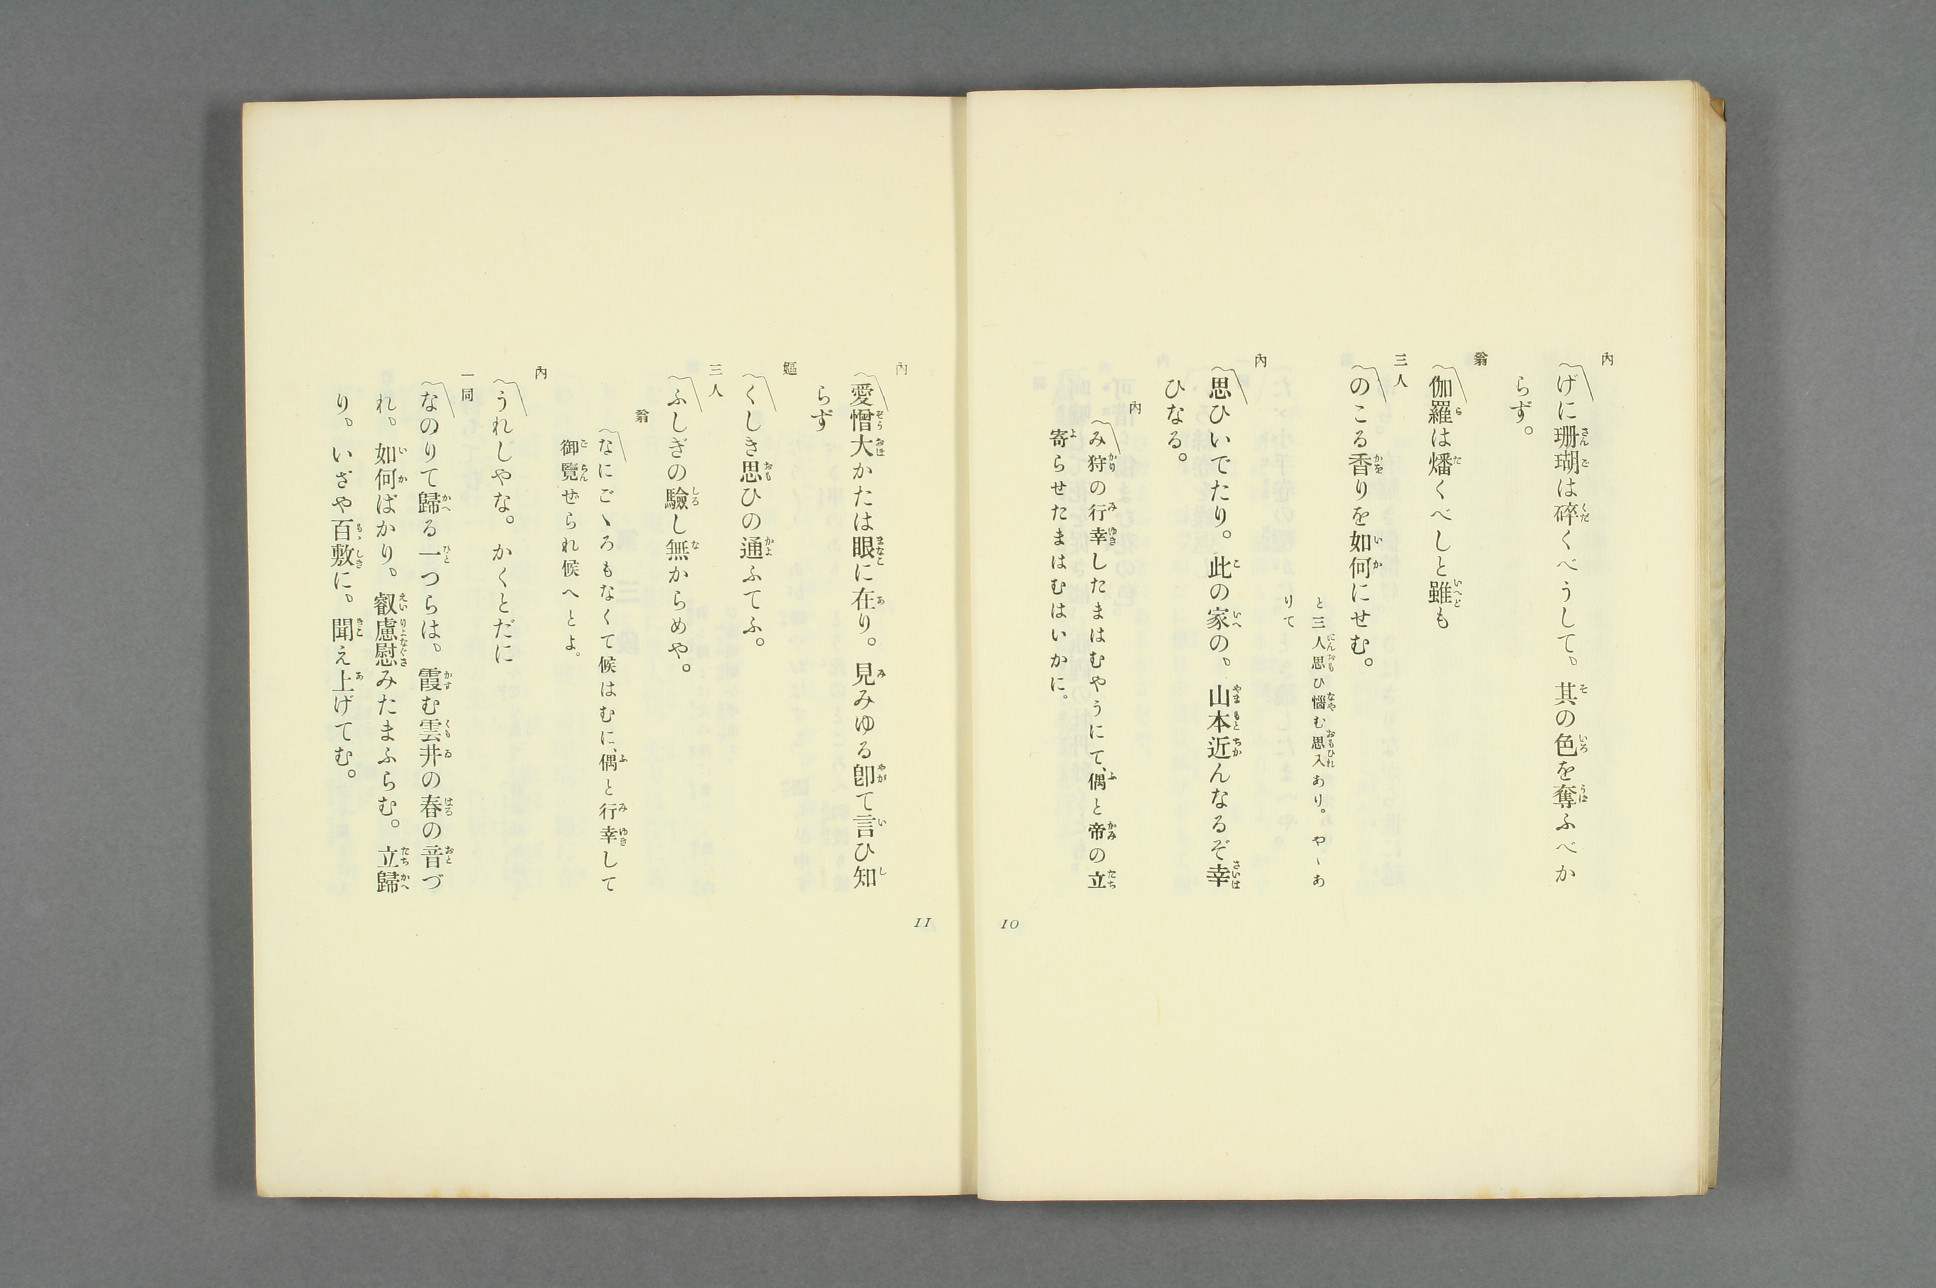 內
〽げに珊瑚は碎くべうして、其の色を奪ふべか
らず。
翁
〽伽羅は燔くべしと雖も
三人
〽のこる香りを如何にせむ。
と三人思ひ惱む思入あり。やゝあ
りて
內
〽思ひいでたり。此の家の、山本近んなるぞ幸
ひなる。
內
〽み狩の行幸したまはむやうにて、偶と帝の立
寄らせたまはむはいかに。
10
內
〽愛憎大かたは眼に在り。見みゆる卽て言ひ知
らず
嫗
〽くしき思ひの通ふてふ。
三人
〽ふしぎの驗し無からめや。
翁
〽なにごゝろもなくて候はむに、偶と行幸して
御覽ぜられ候へとよ。
內
〽うれしやな。かくとだに
一同
〽なのりて歸る一つらは、霞む雲井の春の音づ
れ。如何ばかり。叡慮慰みたまふらむ。立歸
り。いざや百敷に。聞え上げてむ。
11